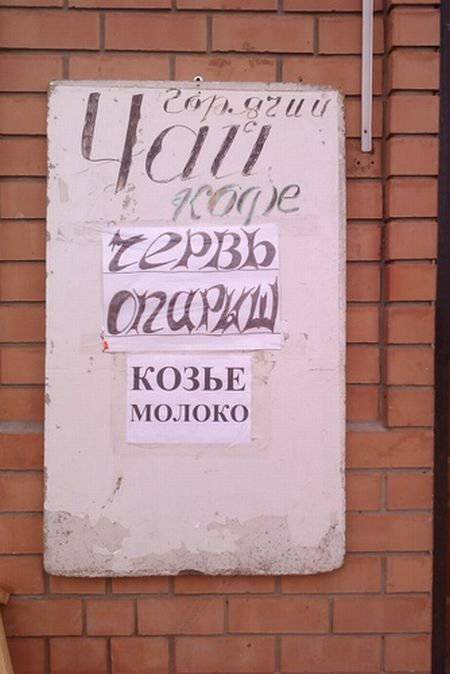 горячий
Чай
кофе
червь
опарыш
КОЗЬЕ
МОЛОКО